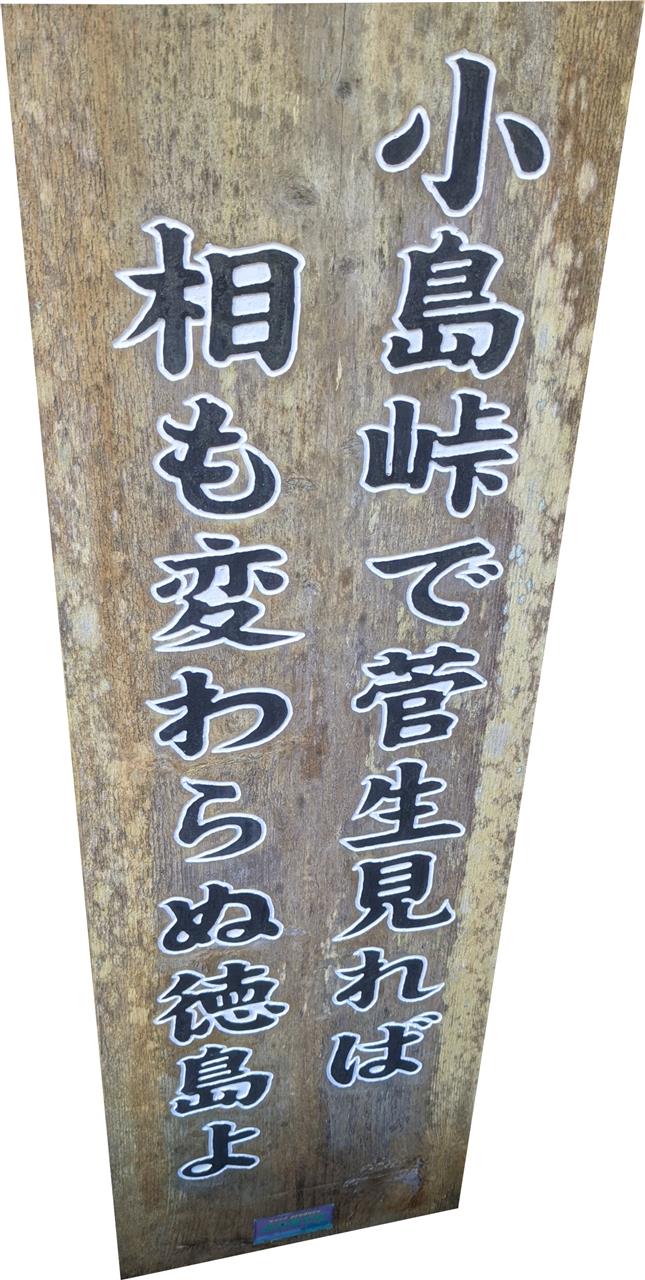 小島峠で菅生見れば
相も変わらぬ徳島よ